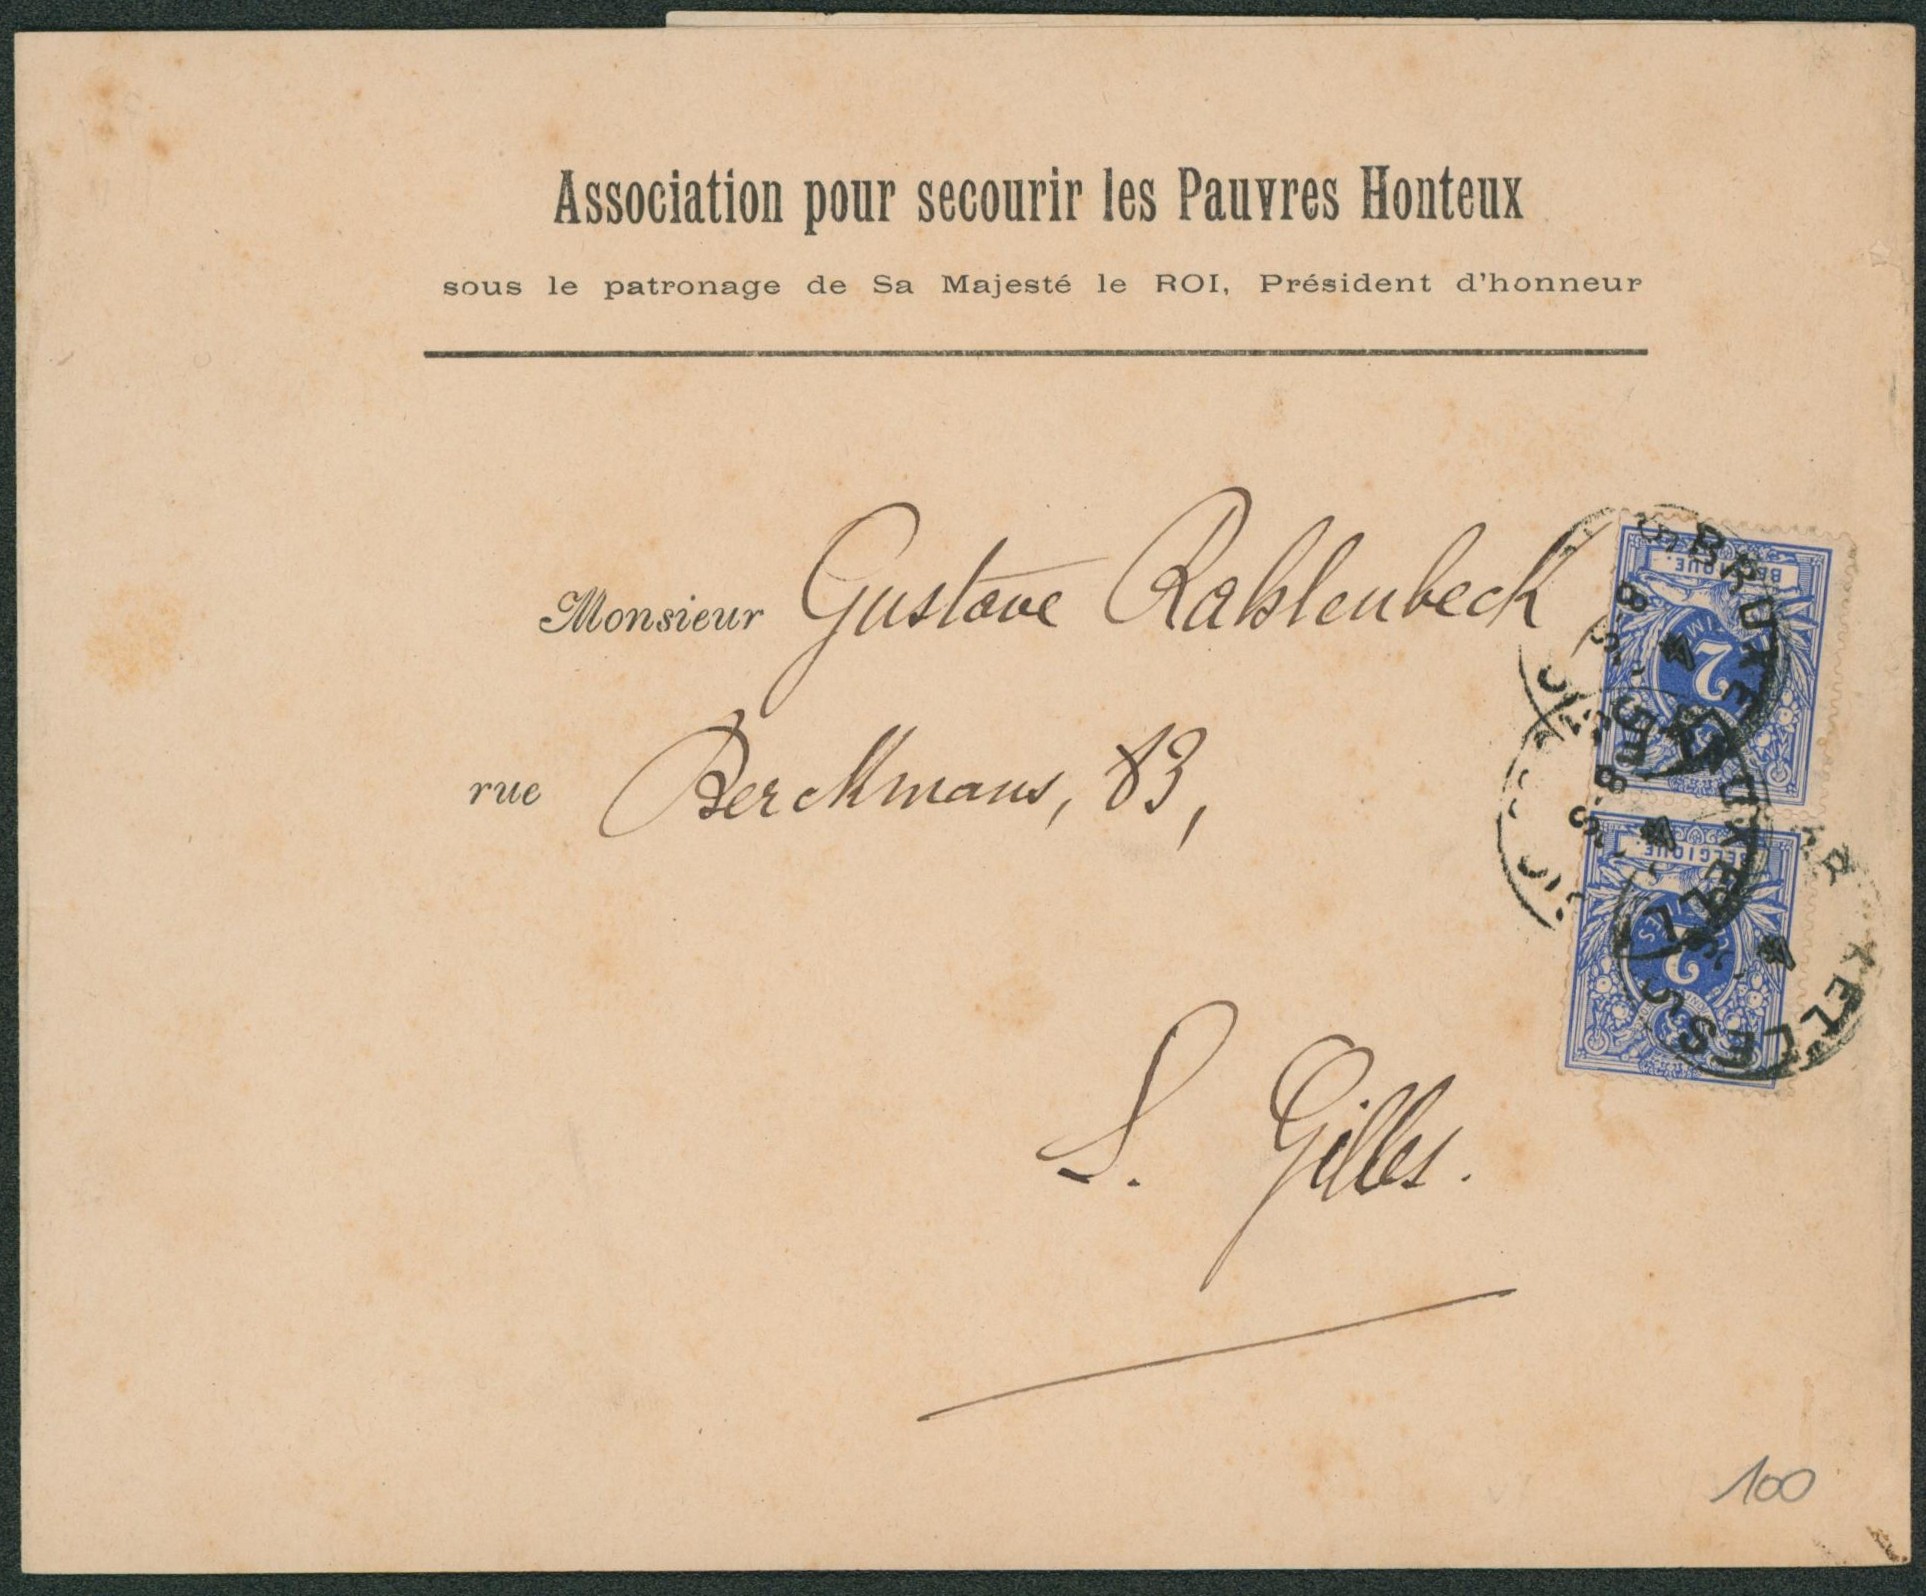 Association pour secourir les Pauvres Honteux
sous le patronage de Sa Majesté le ROI, Président d'honneur
Monsieur Gustave Rahlenbeck
rue Berckmans, 83,
S. Gilles.
BELGIQUE
2
BELGIQUE
2
BRUXELLES
100